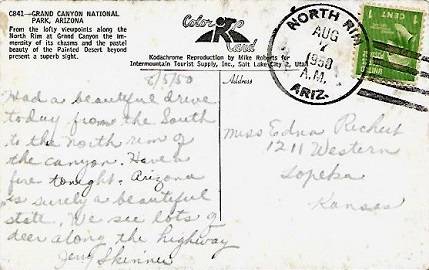 C841—GRAND CANYON NATIONAL
PARK, ARIZONA
From the lofty viewpoints along the
North Rim at Grand Canyon the im-
mensity of its chasms and the pastel
beauty of the Painted Desert beyond
present a superb sight.
Color
Kard
Kodachrome Reproduction by Mike Roberts for
Intermountain Tourist Supply, Inc., Salt Lake City 2, Utah
NORTH RIM
AUG
7
1950
A.M.
ARIZ.
1 CENT 1
8/5/50
Had a beautiful drive
today from the South
to the north rim of
the canyon. Have a
fire tonight. Arizona
is surely a beautiful
state. We see lots of
deer along the highway
Skinner
Address
Miss Edna
1211 Western
Topeka
Kansas